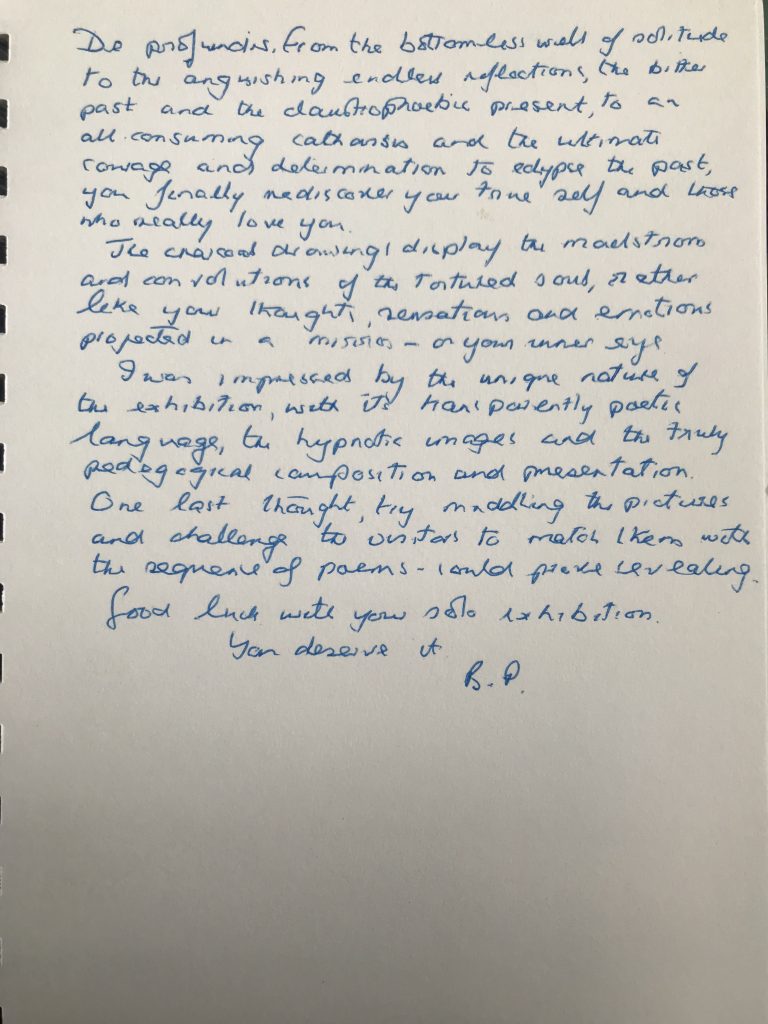 De profundis. From the bottomless well of solitude
to the anguishing endless reflections, the bitter
past and the claustrophoebic present, to an
all-consuming catharsis and the ultimate
courage and determination to eclypse the past,
you finally rediscover your true self and those
who really love you.
The charcoal drawings display the maelstrom
and convolutions of the tortured soul, rather
like your thoughts, sensations and emotions
projected in a mirror - or your inner eye
I was impressed by the unique nature of
the exhibition, with it's transparently poetic
language, the hypnotic images and the truly
pedegogical composition and presentation.
One last thought, try muddling the pictures
and challenge the visitors to match them with
the sequence of poems - could prove revealing.
Good luck with your solo exhibition.
You deserve it
B.P.